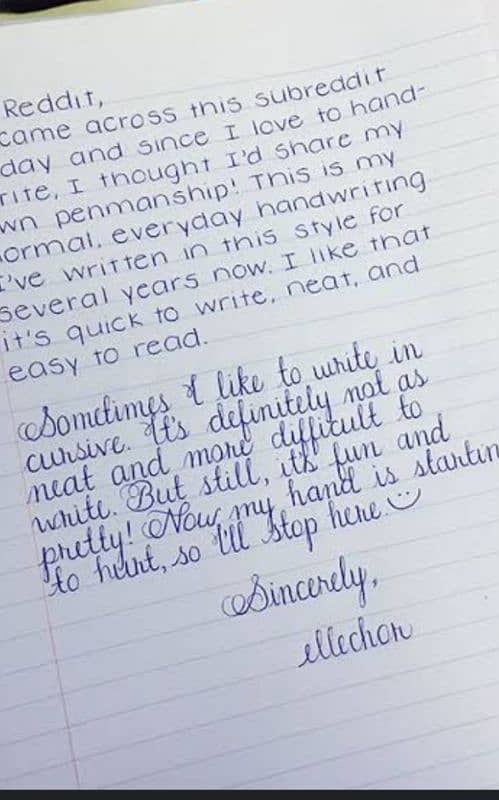 Reddit,
came across this subreddit
day and since I love to hand-
rite, I thought I'd share my
wn penmanship! This is my
ormal, everyday handwriting
I've written in this style for
several years now. I like that
it's quick to write, neat, and
easy to read.
Sometimes I like to write in
cursive. It's definitely not as
neat and more difficult to
write. But still, it's fun and
pretty! Now my hand is startin
to hurt, so I'll stop here.
Sincerely,
ellechor